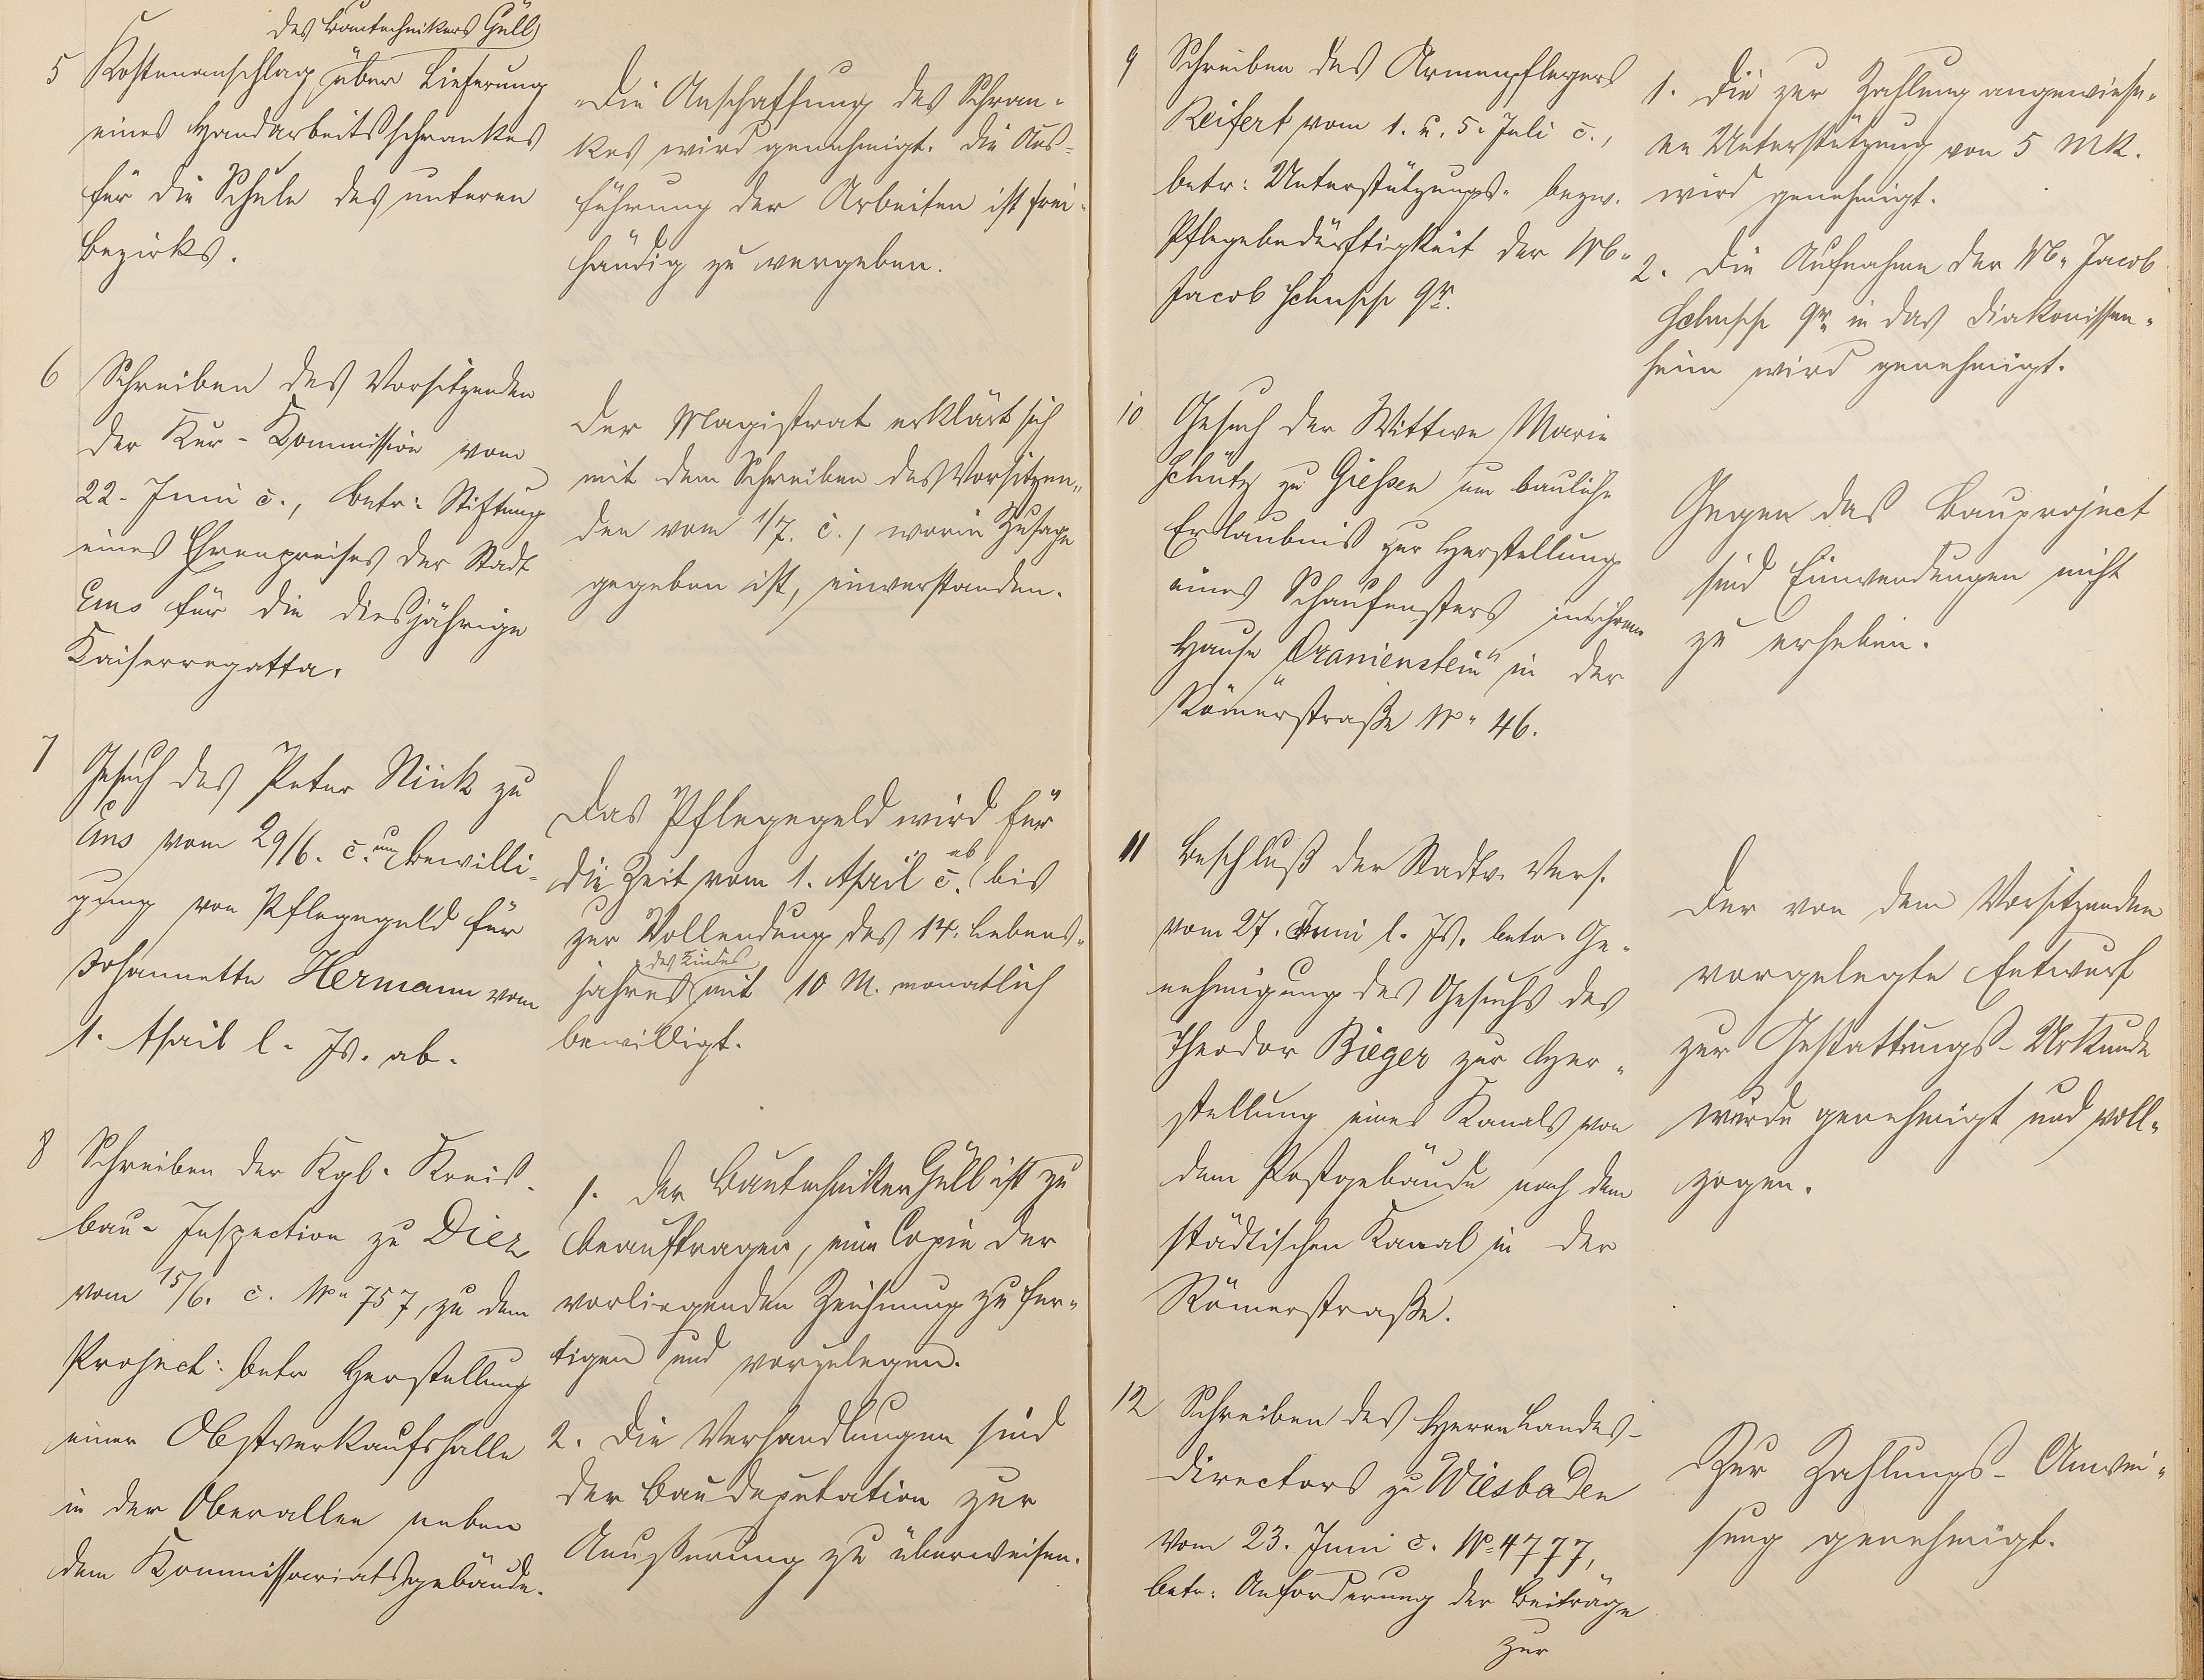 des Bautechnikers Güll
5 Kostenanschlag über Lieferung
eines Handarbeitsschrankes
für die Schule des unteren
Bezirks.
Die Anschaffung des Schran-
kes wird genehmigt. Die Aus-
führung der Arbeiten ist frei-
händig zu vergeben.
6 Schreiben des Vorsitzenden
der Kur-Kommission vom
22. Juni c., betr: Stiftung
eines Ehrenpreises der Stadt
Ems für die diesjährige
Kaiserregatta.
Der Magistrat erklärt sich
mit dem Schreiben des Vorsitzen-
den vom 1/7. c., worin Zusage
gegeben ist, einverstanden.
7 Gesuch des Peter Nink zu
Ems vom 29/6. c. um Bewilli-
gung von Pflegegeld für
Johannette Hermann vom
1. April l. Js. ab.
Das Pflegegeld wird für
die Zeit vom 1. April c. ab bis
zur Vollendung des 14. Lebens-
jahres des Kindes mit 10 M. monatlich
bewilligt.
8 Schreiben der Kgl. Kreis-
bau-Inspection zu Diez
vom 15/6. c. No 757, zu dem
Project: betr Herstellung
einer Obstverkaufshalle
in der Oberallee neben
dem Kommissariatsgebäude.
1. Der Bautechniker Güll ist zu
beauftragen, eine Copie der
vorliegenden Zeichnung zu fer-
tigen und vorzulegen.
2. Die Verhandlungen sind
der Baudeputation zur
Aeußerung zu überweisen.
9 Schreiben des Armenpflegers
Reifert vom 1. u. 5. Juli c.,
betr: Unterstützungs- bezw.
Pflegebedürftigkeit der
Jacob Schupp
1. Die zur Zahlung angewiese-
ne Unterstützung von 5 Mk.
wird genehmigt.
2. Die Aufnahme der Jacob
Schupp in das Diakonissen-
heim wird genehmigt.
10 Gesuch der Wittwe Marie
Schütz zu Giessen um bauliche
Erlaubnis zur Herstellung
eines Schaufensters in ihrem
Hause "Oranienstein" in der
Römerstraße No 46.
Gegen das Bauproject
sind Einwendungen nicht
zu erheben.
11 Beschluß der Stadtv. Vers.
vom 27. Juni l. Js. betr. Ge-
nehmigung des Gesuchs des
Theodor Bieger zur Her-
stellung eines Kanals von
dem Postgebäude nach dem
städtischen Kanal in der
Römerstraße.
Der von dem Vorsitzenden
vorgelegte Entwurf
zur Gestattungs-Urkunde
wurde genehmigt und voll-
zogen.
12 Schreiben des Herrn Landes-
directors zu Wiesbaden
vom 23. Juni c. No 4777,
betr: Anforderung der Beiträge
zur
Zur Zahlungs-Anwei-
sung genehmigt.